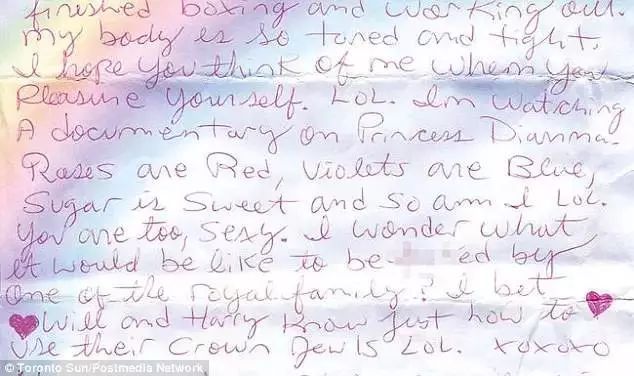 finished boxing and working out.
my body is so toned and tight.
I hope you think of me when you
Pleasure yourself. LOL. I'm watching
A documentary on Princess Dianna.
Roses are Red, Violets are Blue,
Sugar is Sweet and so am I LOL.
You are too, sexy. I wonder what
it would be like to be ed by
one of the royal family? I bet
Will and Harry know just how to
use their Crown Jewls LOL. xoxoxo
© Toronto Sun/Postmedia Network